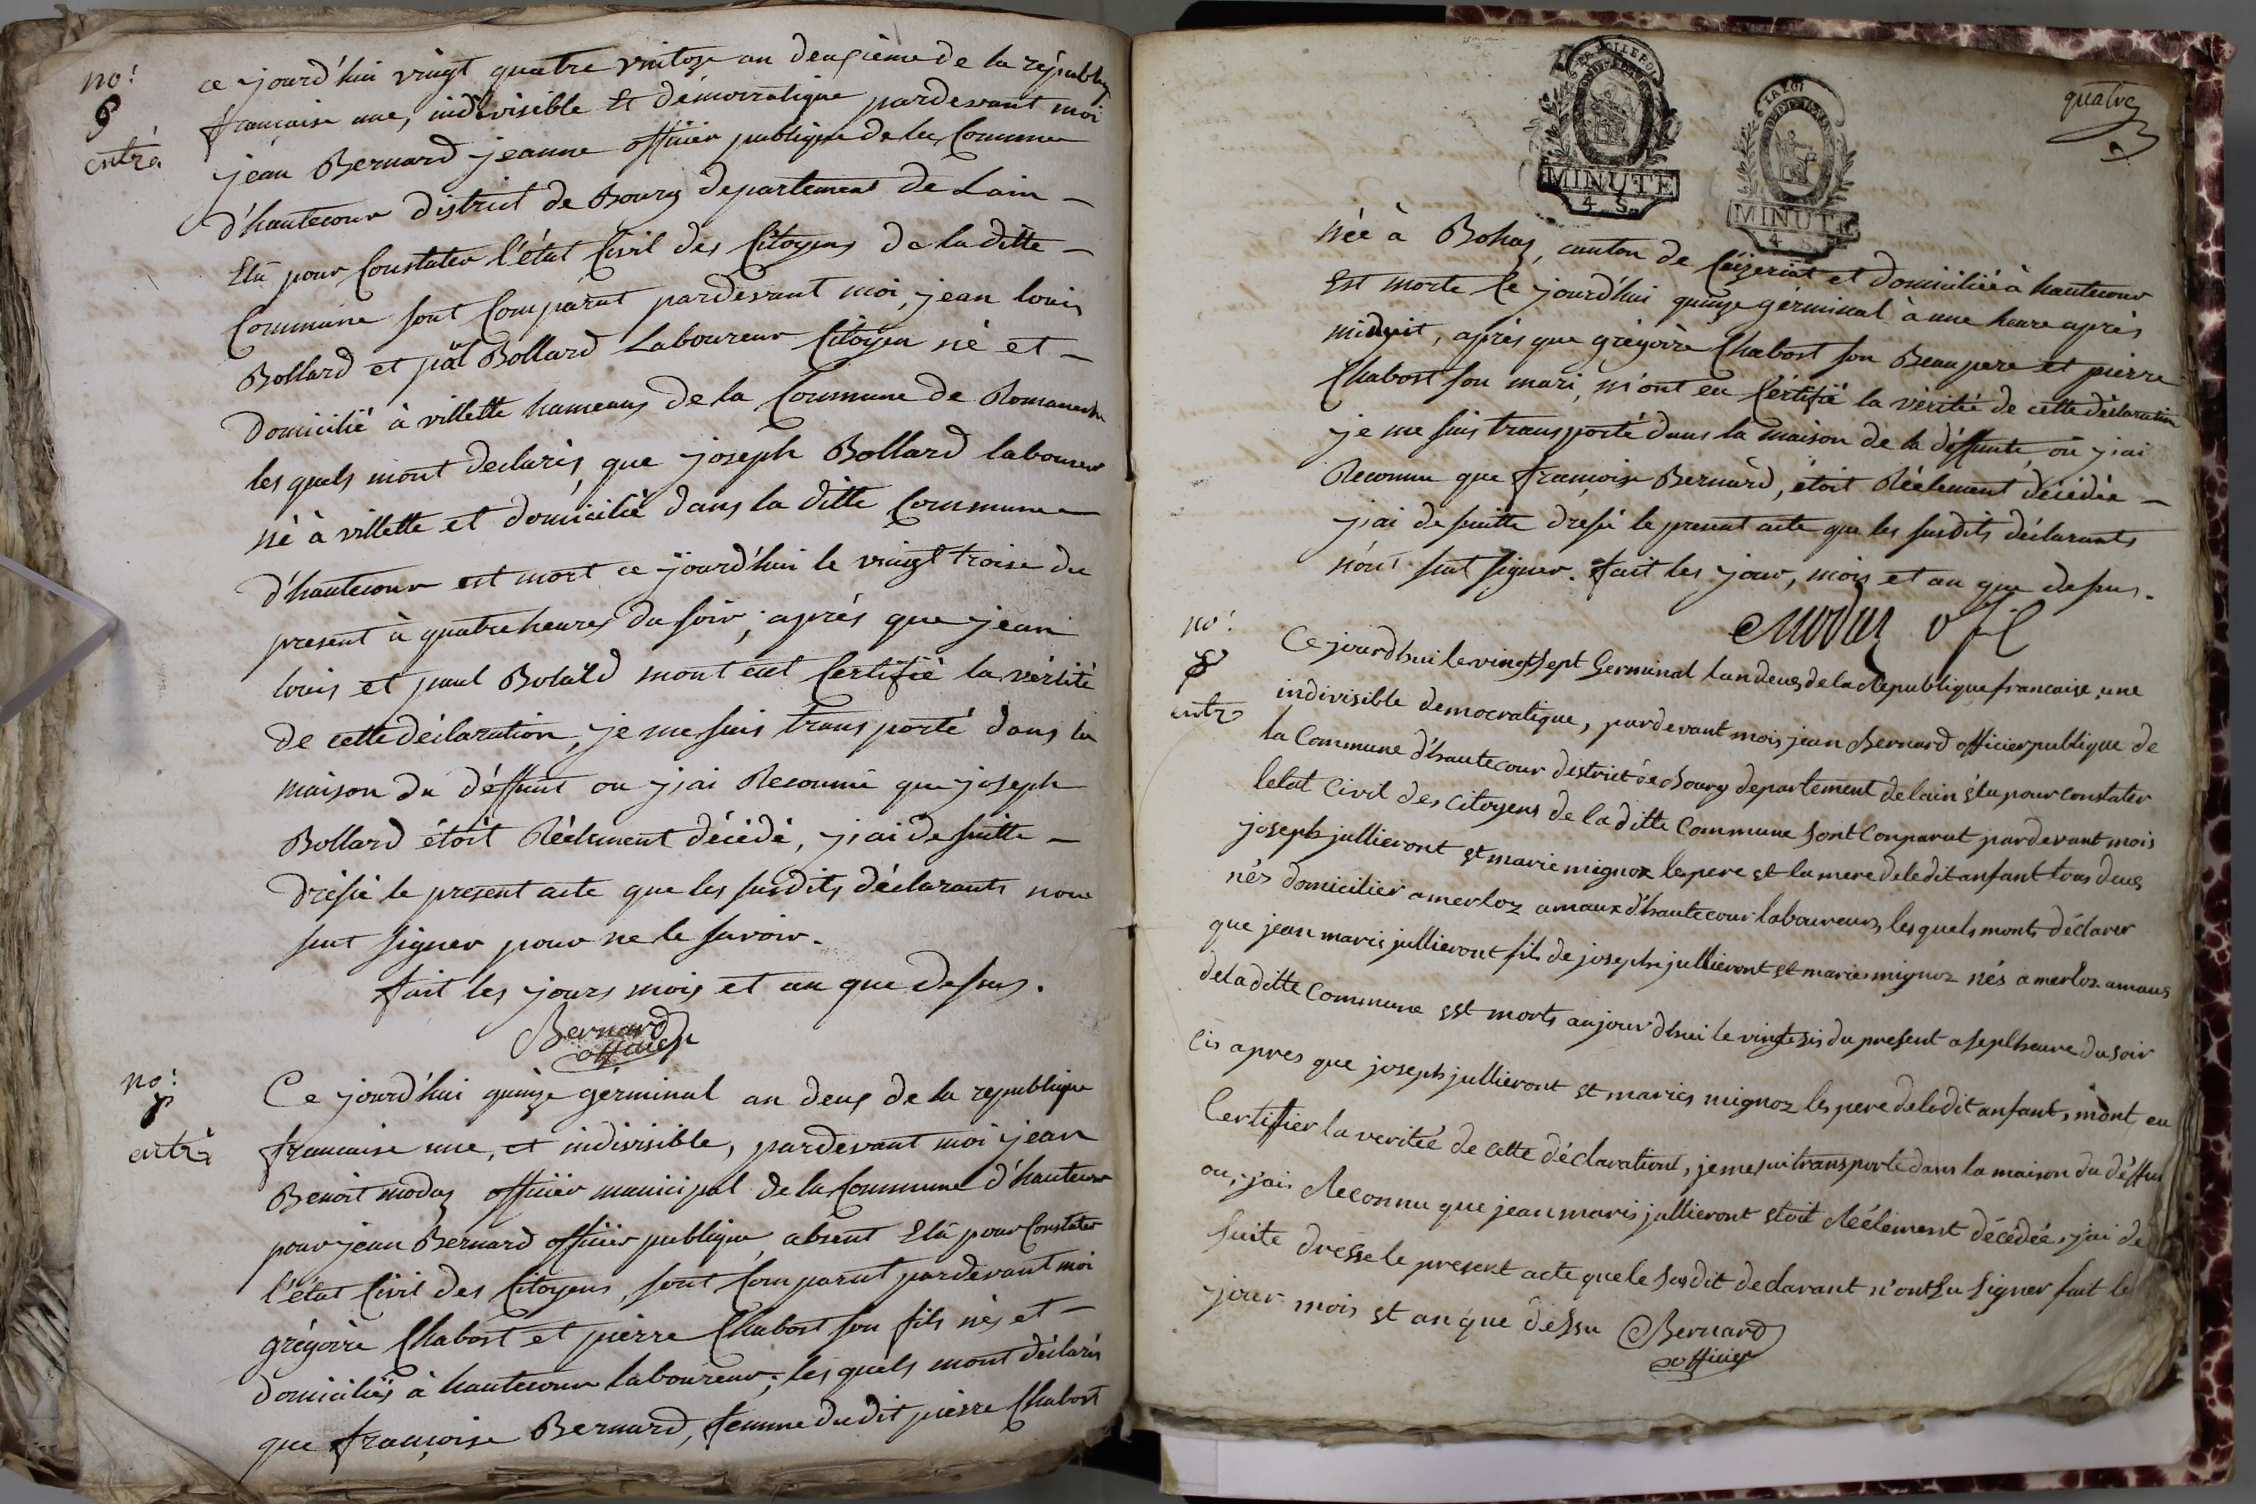 no:
6
entré
ce jourd'hui vingt quatre vantoze an deuxième de la républiq
francaise une, indivisible Et démocratique pardevant moi
jéan Bernard jeanne officier publique de la Commune
d'hautecour district de Bourg departement de Lain -
Elû pour Constater l'état Civil des Citoyens de la ditte -
Commune sont Comparut pardevant moi, jean louis
Bollard et pâl Bollard Laboureur Citoyen né et -
Domicilié à villette hameaux de la Commune de Romaneche
les quels m'ont declarés, que joseph Bollard laboureur
né à villette et domicilié dans la ditte Commune -
d'hautecour est mort ce jourd'hui le vingt troise du
present à quatre heures du soir, aprés que jean
louis et paul Bolald mont eut Certifié la vérité
de cette déclaration, je me suis transporté dans la
maison du déffunt ou j'ai Reconnu que joseph
Bollard étoit Réélement décédé, j'ai de suitte -
drésié le present acte que les susdits déclarants non
sut signer pour ne le savoir.
fait les jours mois et an que dessus.
Bernard
officier
no:
7
entré
Ce jourd'hui quinze gérminal an deux de la republique
francaise une, et indivisible, pardevant moi jean
Benoit modas officier municipal de la Commune d'hautecour
pour jean Bernard officier publique absent Elû pour Constater
l'état Civil des Citoyens, sont Comparut pardevant moi
grégoire Chabost et pierre Chabost son fils nés et -
domiciliés à hautecour laboureur; les quels mont déclarés
que françoise Bernard, femme du dit pierre Chabost
quatre
LA LOI
MINUTE
4 S.
LA LOI
MINUTE
4 S
Née à Bohas, canton de Ceizeriat et domiciliée à hautecour
Est morte le jourd'hui quinze gérminal à une heure aprés
minuit, aprés que grégoire Chabost son Beau pere et pierre
Chabost son mari, m'ont eu Cértifié la vérité de cette déclaration
je me suis transporté dans la maison de la déffunte, où j'ai
Reconnu que francoise Bernard, étoit Réélement décédée -
j'ai de suitte dresié le present acte que les susdits déclarants
n'ont sut signer. fait les jour, mois et an que dessus.
Modas off
no:
8
entré
Ce jourdhui le vingt sept Germinal lan deux de la Republique francaise, une
indivisible democratique, pardevant mois jean Bernard officier publique de
la Commune d'hautecour destrict de Bourg departement de lain élu pour constater
letat Civil des Citoyens de la ditte Commune sont Conparut pardevant mois
joseph jullieront et marie mignoz le pere et la mere de ledit anfant tous deus
nés domicilier a merloz amaux d'hautecour laboureurs, les quels monts déclarer
que jean maris jullieront fils de joseph jullieront et maries mignoz nés a merloz amaus
de la ditte Commune est morts aujourdhui le vingt sis du present a sept heure du soir
Cis apres que joseph jullieront et maries mignoz les pere de ledit anfant, mont eu
Certiffier la veritée de cette déclarationt, je me sui transporte dans la maison du déffun
ou, j'ais Reconnu que jean maris jullieront etoit Réélement décédée, j'ai de
suite dresse le present acte que le susdit declarant n'ont su signer fait le
jour mois et an que dessu Bernard
officier